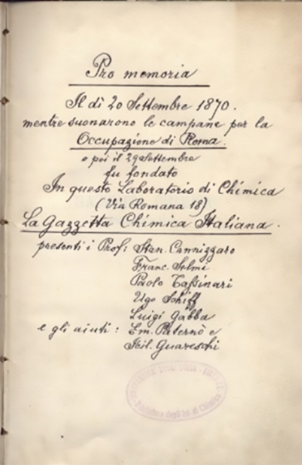 Pro memoria
Il dì 20 Settembre 1870.
mentre suonarono le campane per la
Occupazione di Roma.
e poi il 29 Settembre
fu fondato
In questo Laboratorio di Chimica
(Via Romana 18)
La Gazzetta Chimica Italiana.
presenti i Prof. Stan. Cannizzaro
Franc. Selmi
Paolo Tassinari
Ugo Schiff
Luigi Gabba
e gli aiuti: Em. Paternò e
Icil. Guareschi